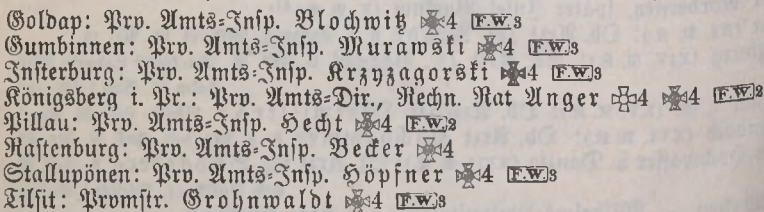 Goldap: Prv. Amts-Insp. Blochwitz ✠4 F.W.3
Gumbinnen: Prv. Amts-Insp. Murawski ✠4 F.W.3
Insterburg: Prv. Amts-Insp. Krzyzagorski ✠4 F.W.3
Königsberg i. Pr.: Prv. Amts-Dir., Rechn. Rat Anger ✠4 ✠4 F.W.2
Pillau: Prv. Amts-Insp. Hecht ✠4 F.W.2
Rastenburg: Prv. Amts-Insp. Becker ✠4
Stallupönen: Prv. Amts-Insp. Höpfner ✠4 F.W.3
Tilsit: Prvmstr. Grohnwaldt ✠4 F.W.3